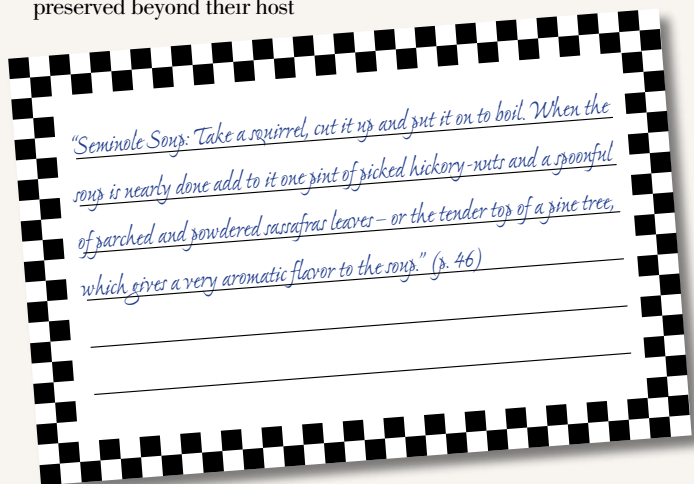 preserved beyond their host
“Seminole Soup: Take a squirrel, cut it up and put it on to boil. When the
soup is nearly done add to it one pint of picked hickory-nuts and a spoonful
of parched and powdered sassafras leaves – or the tender top of a pine tree,
which gives a very aromatic flavor to the soup.” (p. 46)